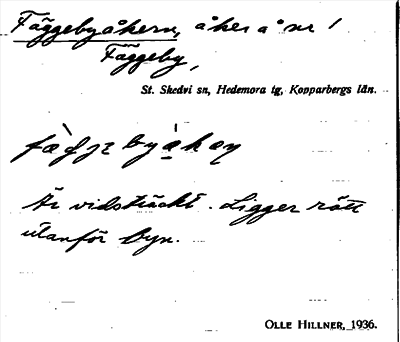 Fäggebyåkern, åker å nr 1
Fäggeby,
St. Skedvi sn, Hedemora tg, Kopparbergs län.
Är vidsträckt. Ligger rätt
utanför byn.
OLLE HILLNER, 1936.